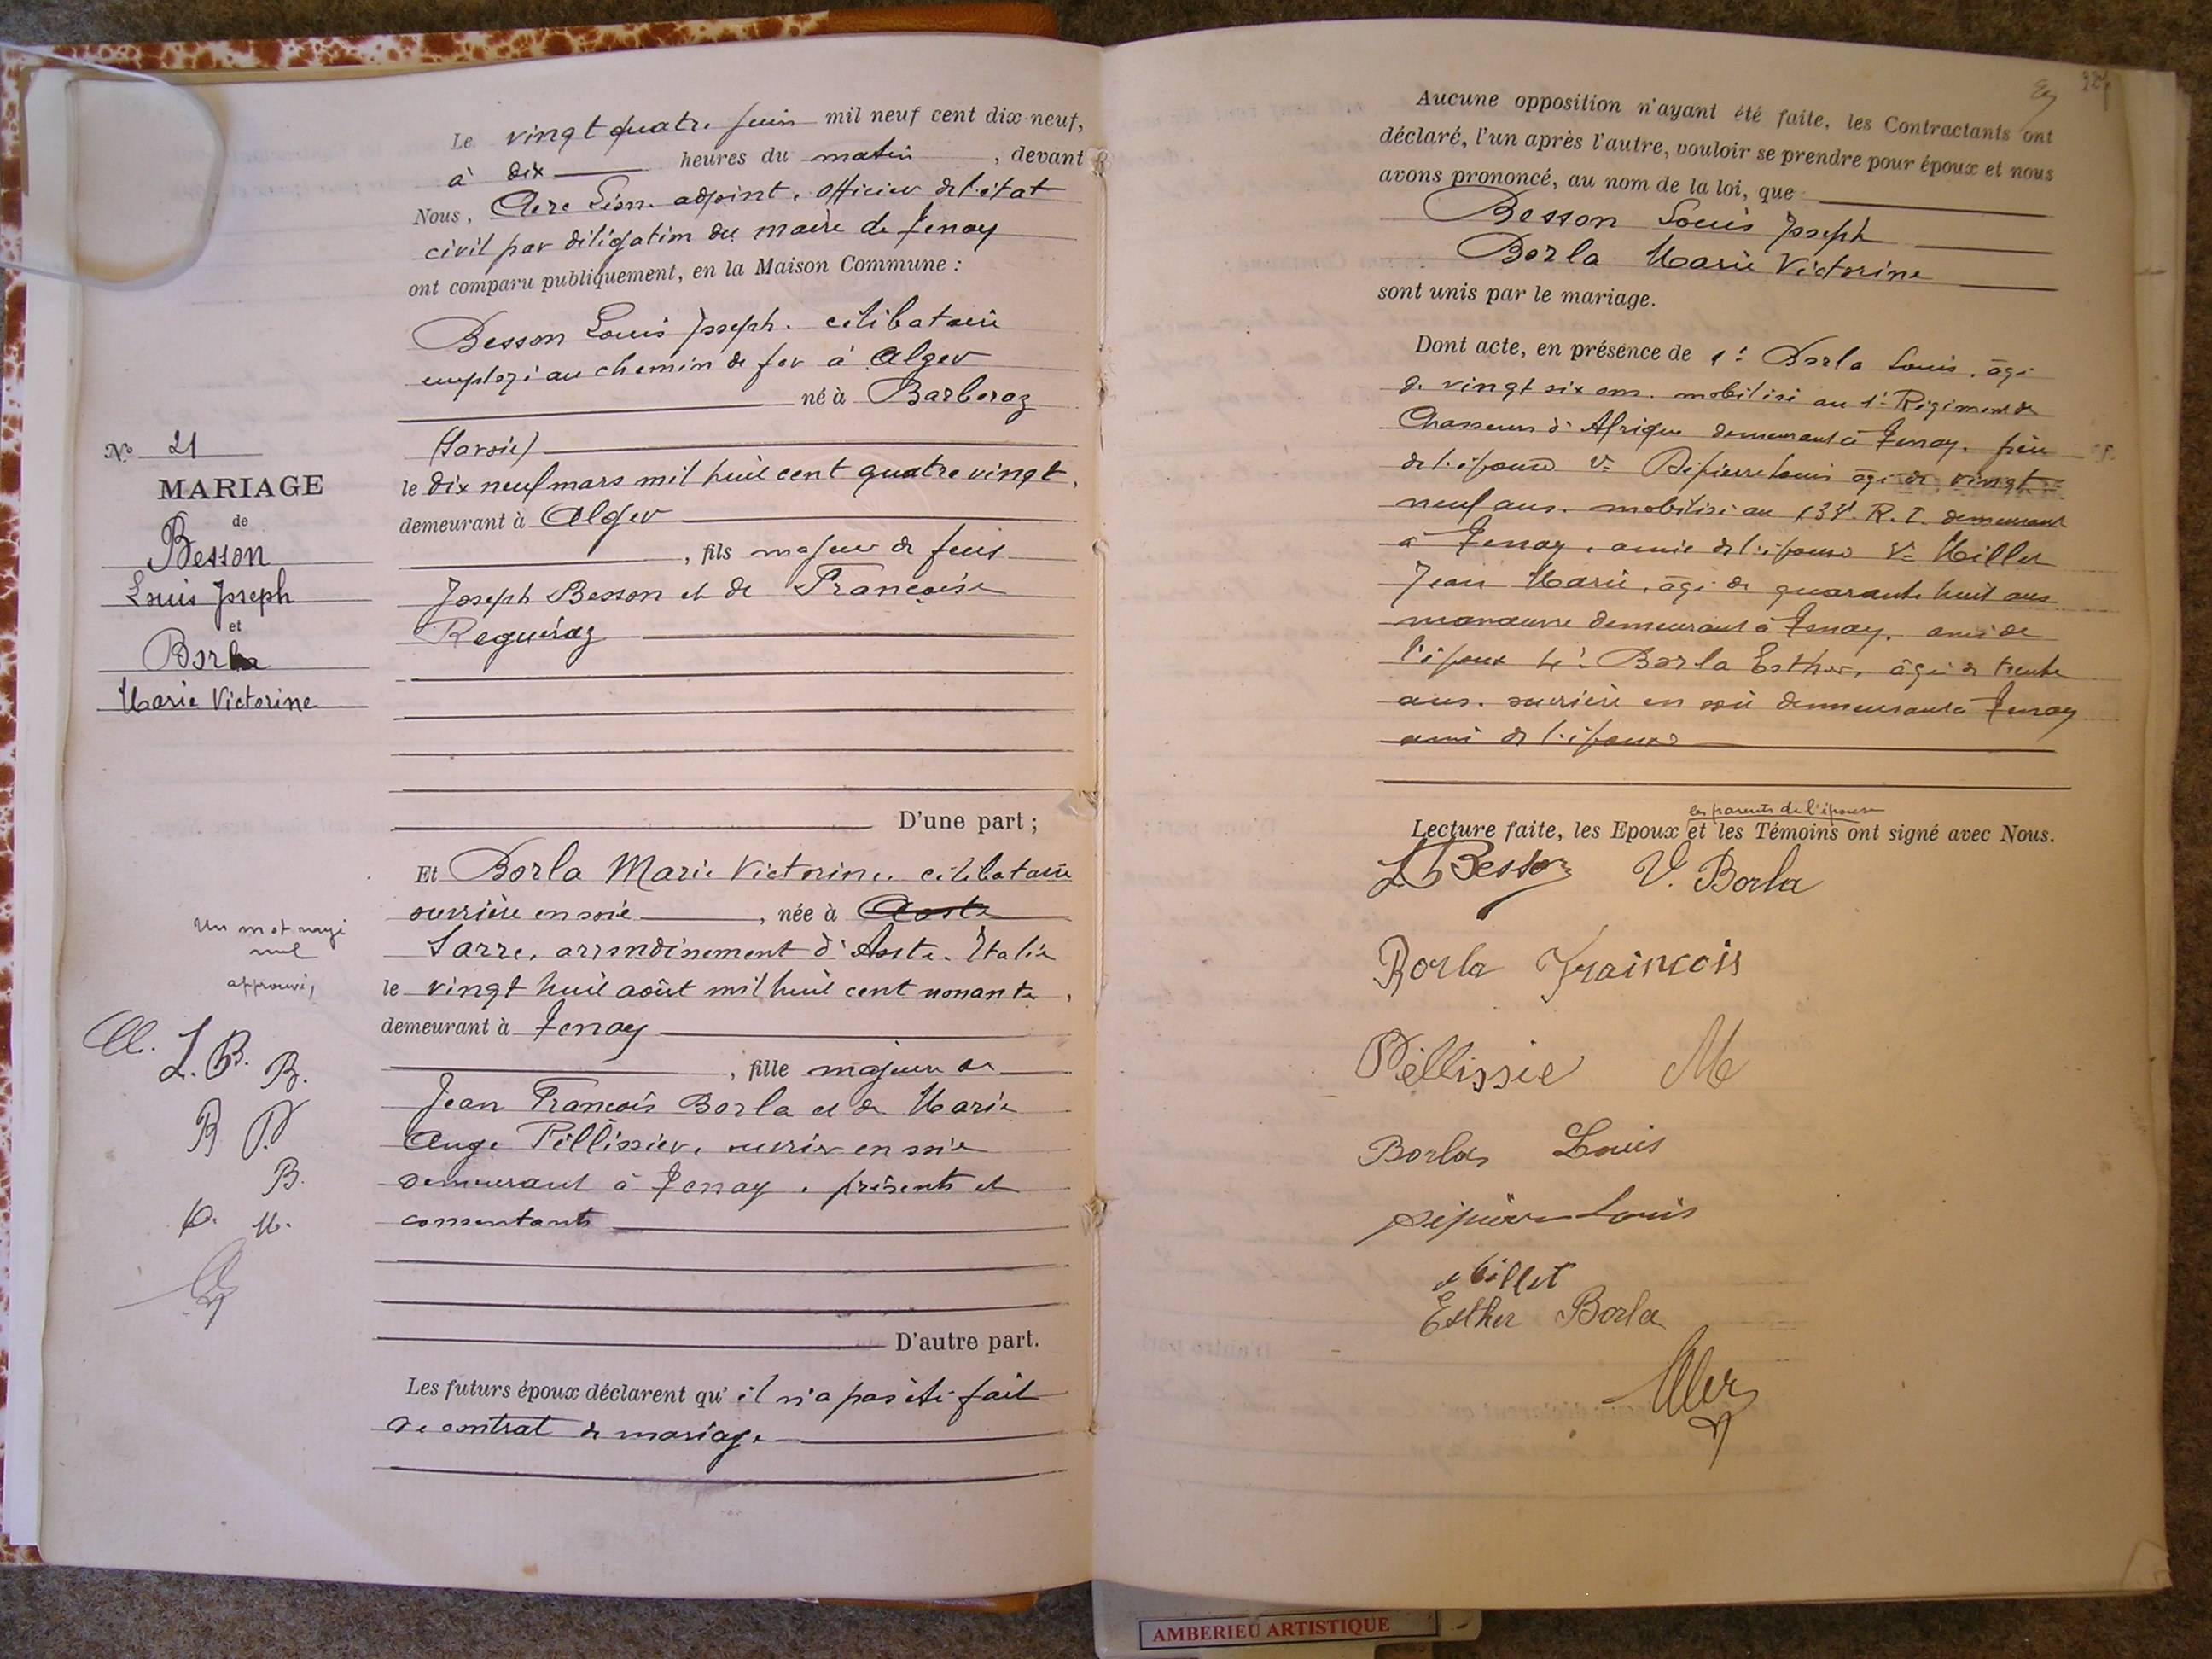 Le vingt quatre juin mil neuf cent dix-neuf,
à dix heures du matin, devant
Nous, Léon adjoint, officier de l'état
civil par délégation du maire de Tenay
ont comparu publiquement, en la Maison Commune :
Besson Louis Joseph. célibataire
employé au chemin de fer à Alger
né à Barberaz
(Savoie)
le dix neuf mars mil huit cent quatre vingt,
demeurant à Alger
, fils majeur de feus
Joseph Besson et de Françoise
Reguéraz
D'une part ;
No 21
MARIAGE
de
Besson
Louis Joseph
et
Borla
Marie Victorine
Et Borla Marie Victorine. célibataire
ouvrière en soie, née à Aoste
Sarre, arrondinement d'Aoste. Italie
le vingt huit août mil huit cent nonante,
demeurant à Tenay
, fille majeure de
Jean François Borla et de Marie
Ange Péllissier, ouvrier en soie
demeurant à Tenay, présents et
consentants
D'autre part.
Les futurs époux déclarent qu'il n'a pas été fait
de contrat de mariage
Un mot rayé
nul
approuvé,
L. B. B.
B. P.
B.
D. M.
Aucune opposition n'ayant été faite, les Contractants ont
déclaré, l'un après l'autre, vouloir se prendre pour époux et nous
avons prononcé, au nom de la loi, que
Besson Louis Joseph
Borla Marie Victorine
sont unis par le mariage.
Dont acte, en présence de 1° Borla Louis, âgé
de vingt six ans. mobilisé au 1er Régiment de
Chasseurs d'Afrique demeurant à Tenay, frère
de l'épouse 2° Dépierre Louis âgé de vingt
neuf ans. mobilisé au R. I. demeurant
à Tenay, amie de l'épouse 3° Millet
Jean Marie, âgé de quarante huit ans
manœuvre demeurant à Tenay, ami de
l'époux 4° Borla Esther, âgée de trente
ans. ouvrière en soie demeurant à Tenay
amie de l'épouse
les parents de l'épouse
Lecture faite, les Epoux et les Témoins ont signé avec Nous.
L Besson V. Borla
Borla Francois
Péllissie M
Borla Louis
Dépierre Louis
Millet
Esther Borla
AMBERIEU ARTISTIQUE